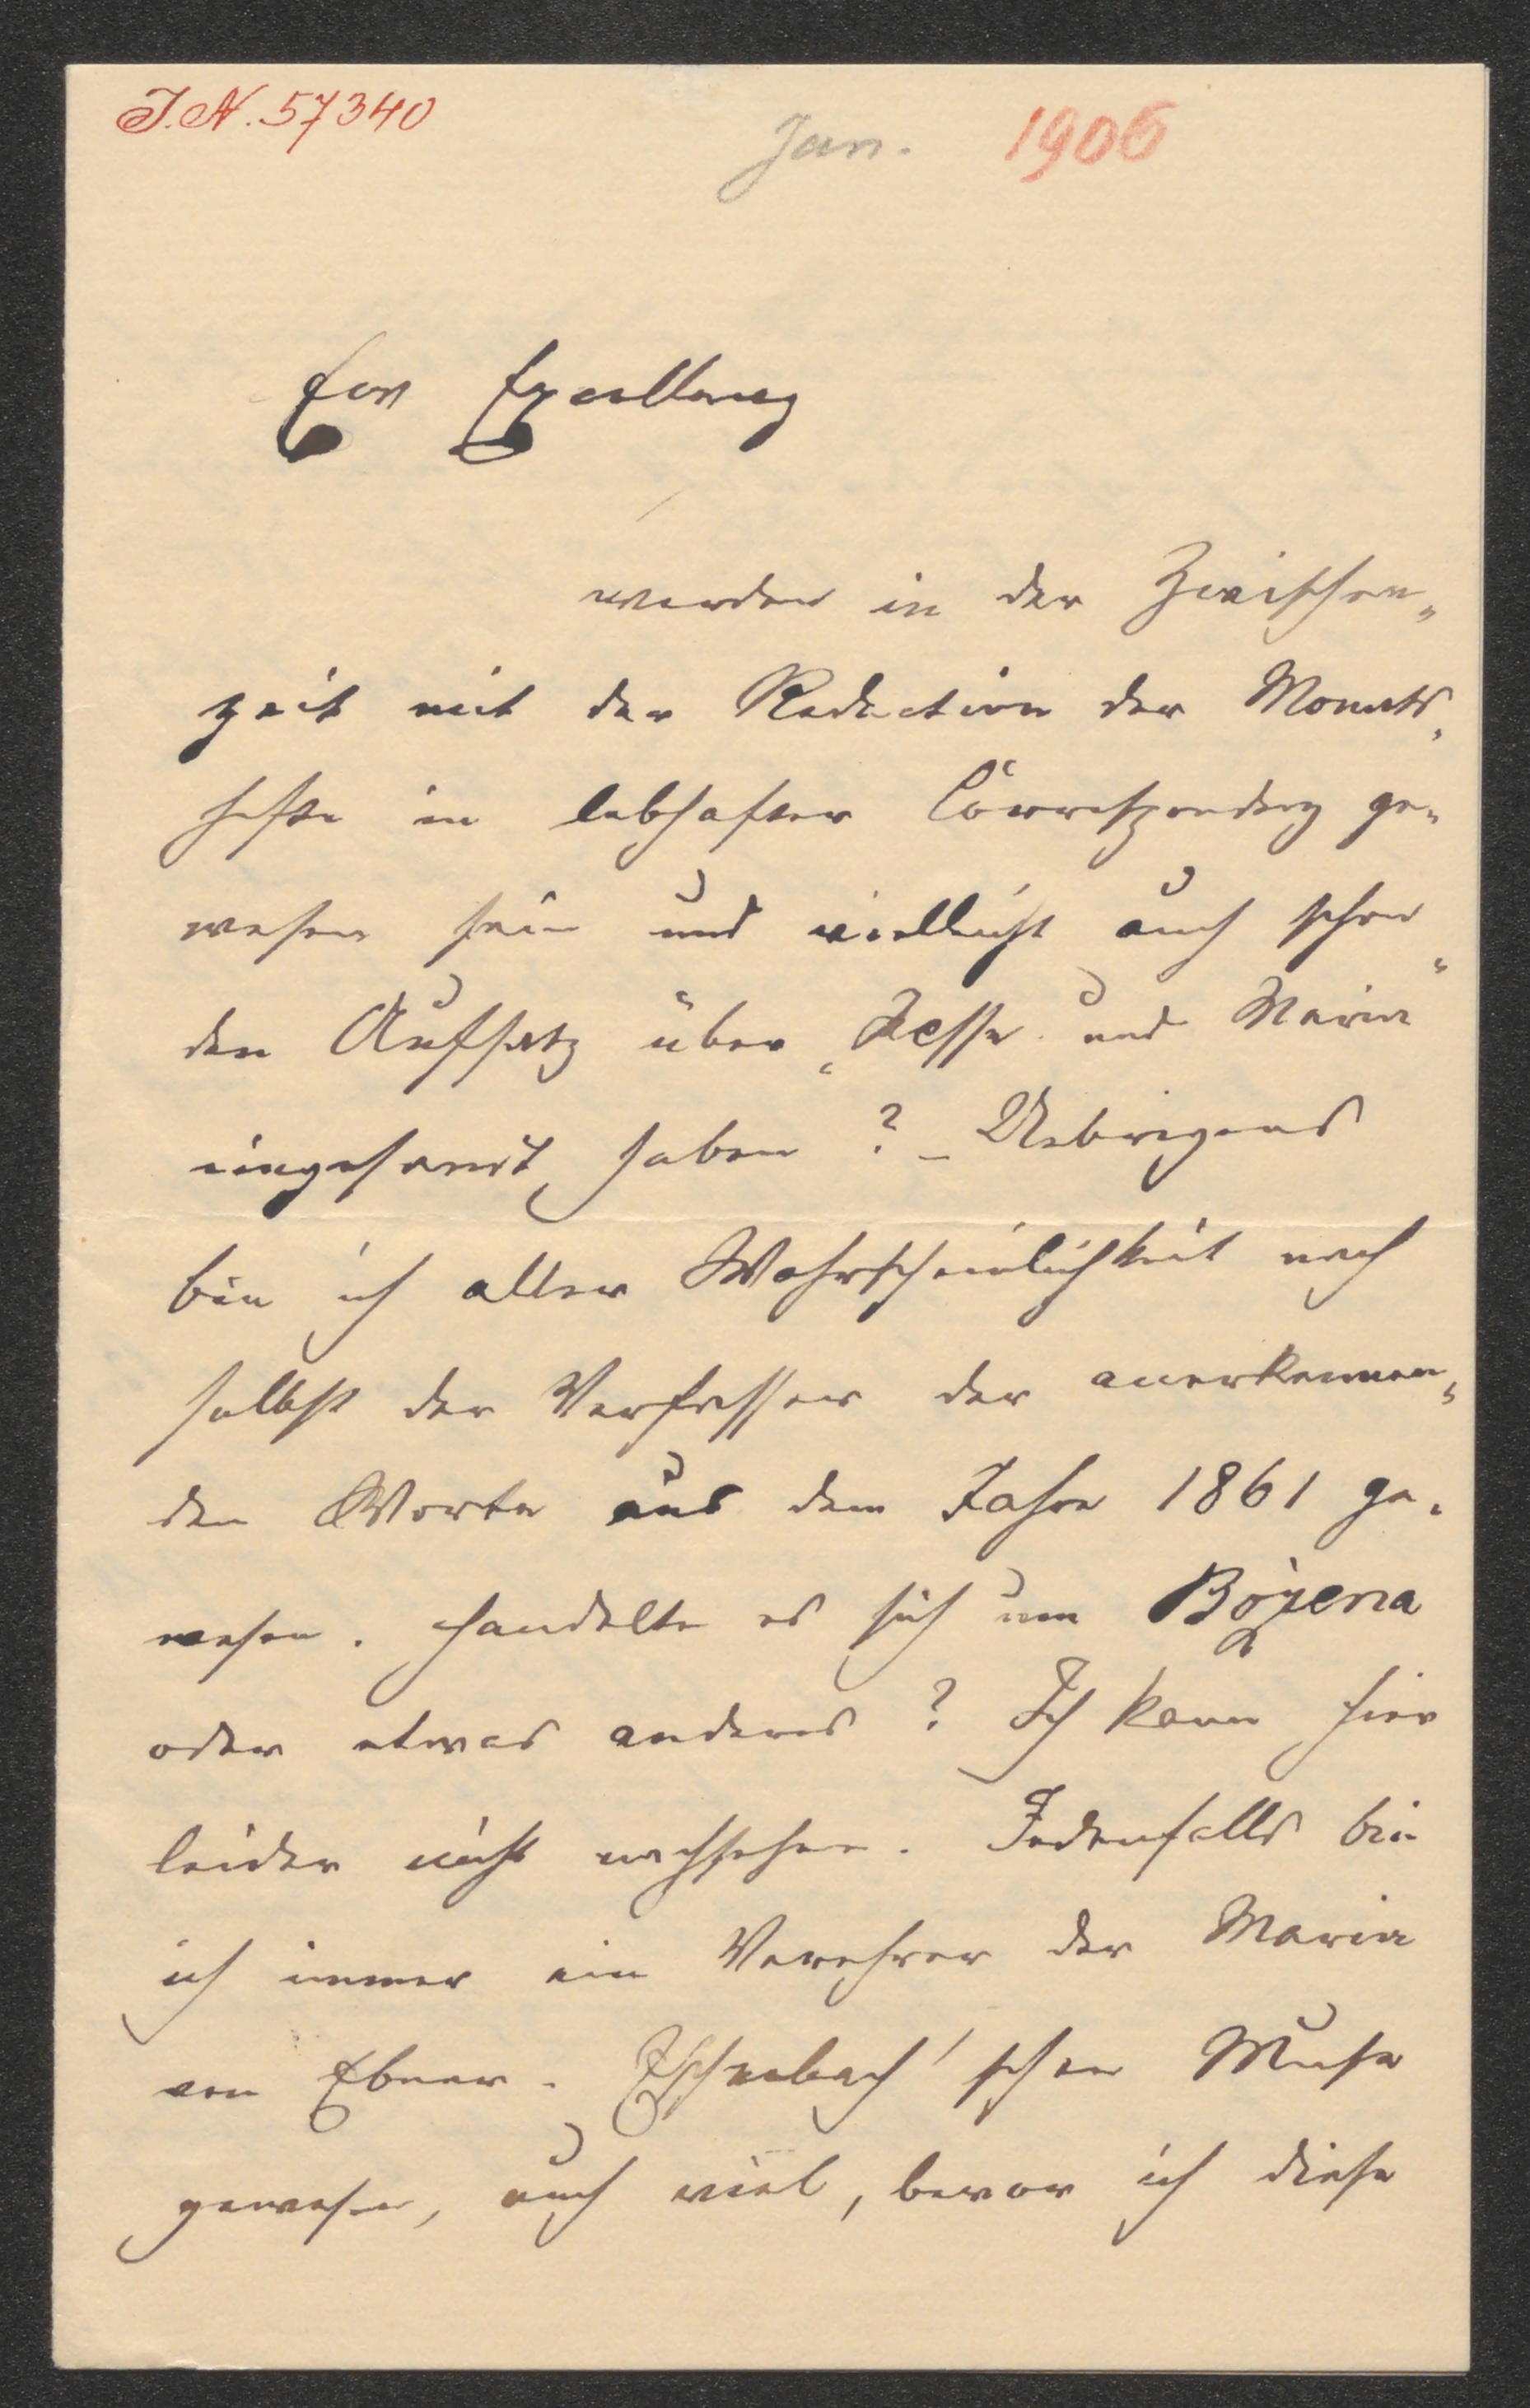 J. N. 57340
Jan. 1906
Euer Excellenz
werden in der Zwischen-
zeit mit der Redaction der Monats-
hefte in lebhafter Correspondenz ge-
wesen sein und vielleicht auch schon
den Aufsatz über „Jesse und Maria“
eingesandt haben? – Uebrigens
bin ich aller Wahrscheinlichkeit nach
selbst der Verfasser der anerkennen-
den Worte aus dem Jahre 1861 ge-
wesen. Handelte es sich um Bozena
oder etwas anderes? Ich kann hier
leider nicht nachsehen. Jedenfalls bin
ich immer ein Verehrer der Marie
von Ebner-Eschenbach'schen Muse
gewesen, auch viel, bevor ich diese